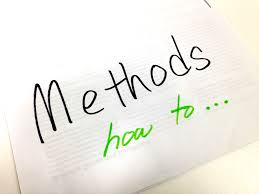 Methods
how to ...